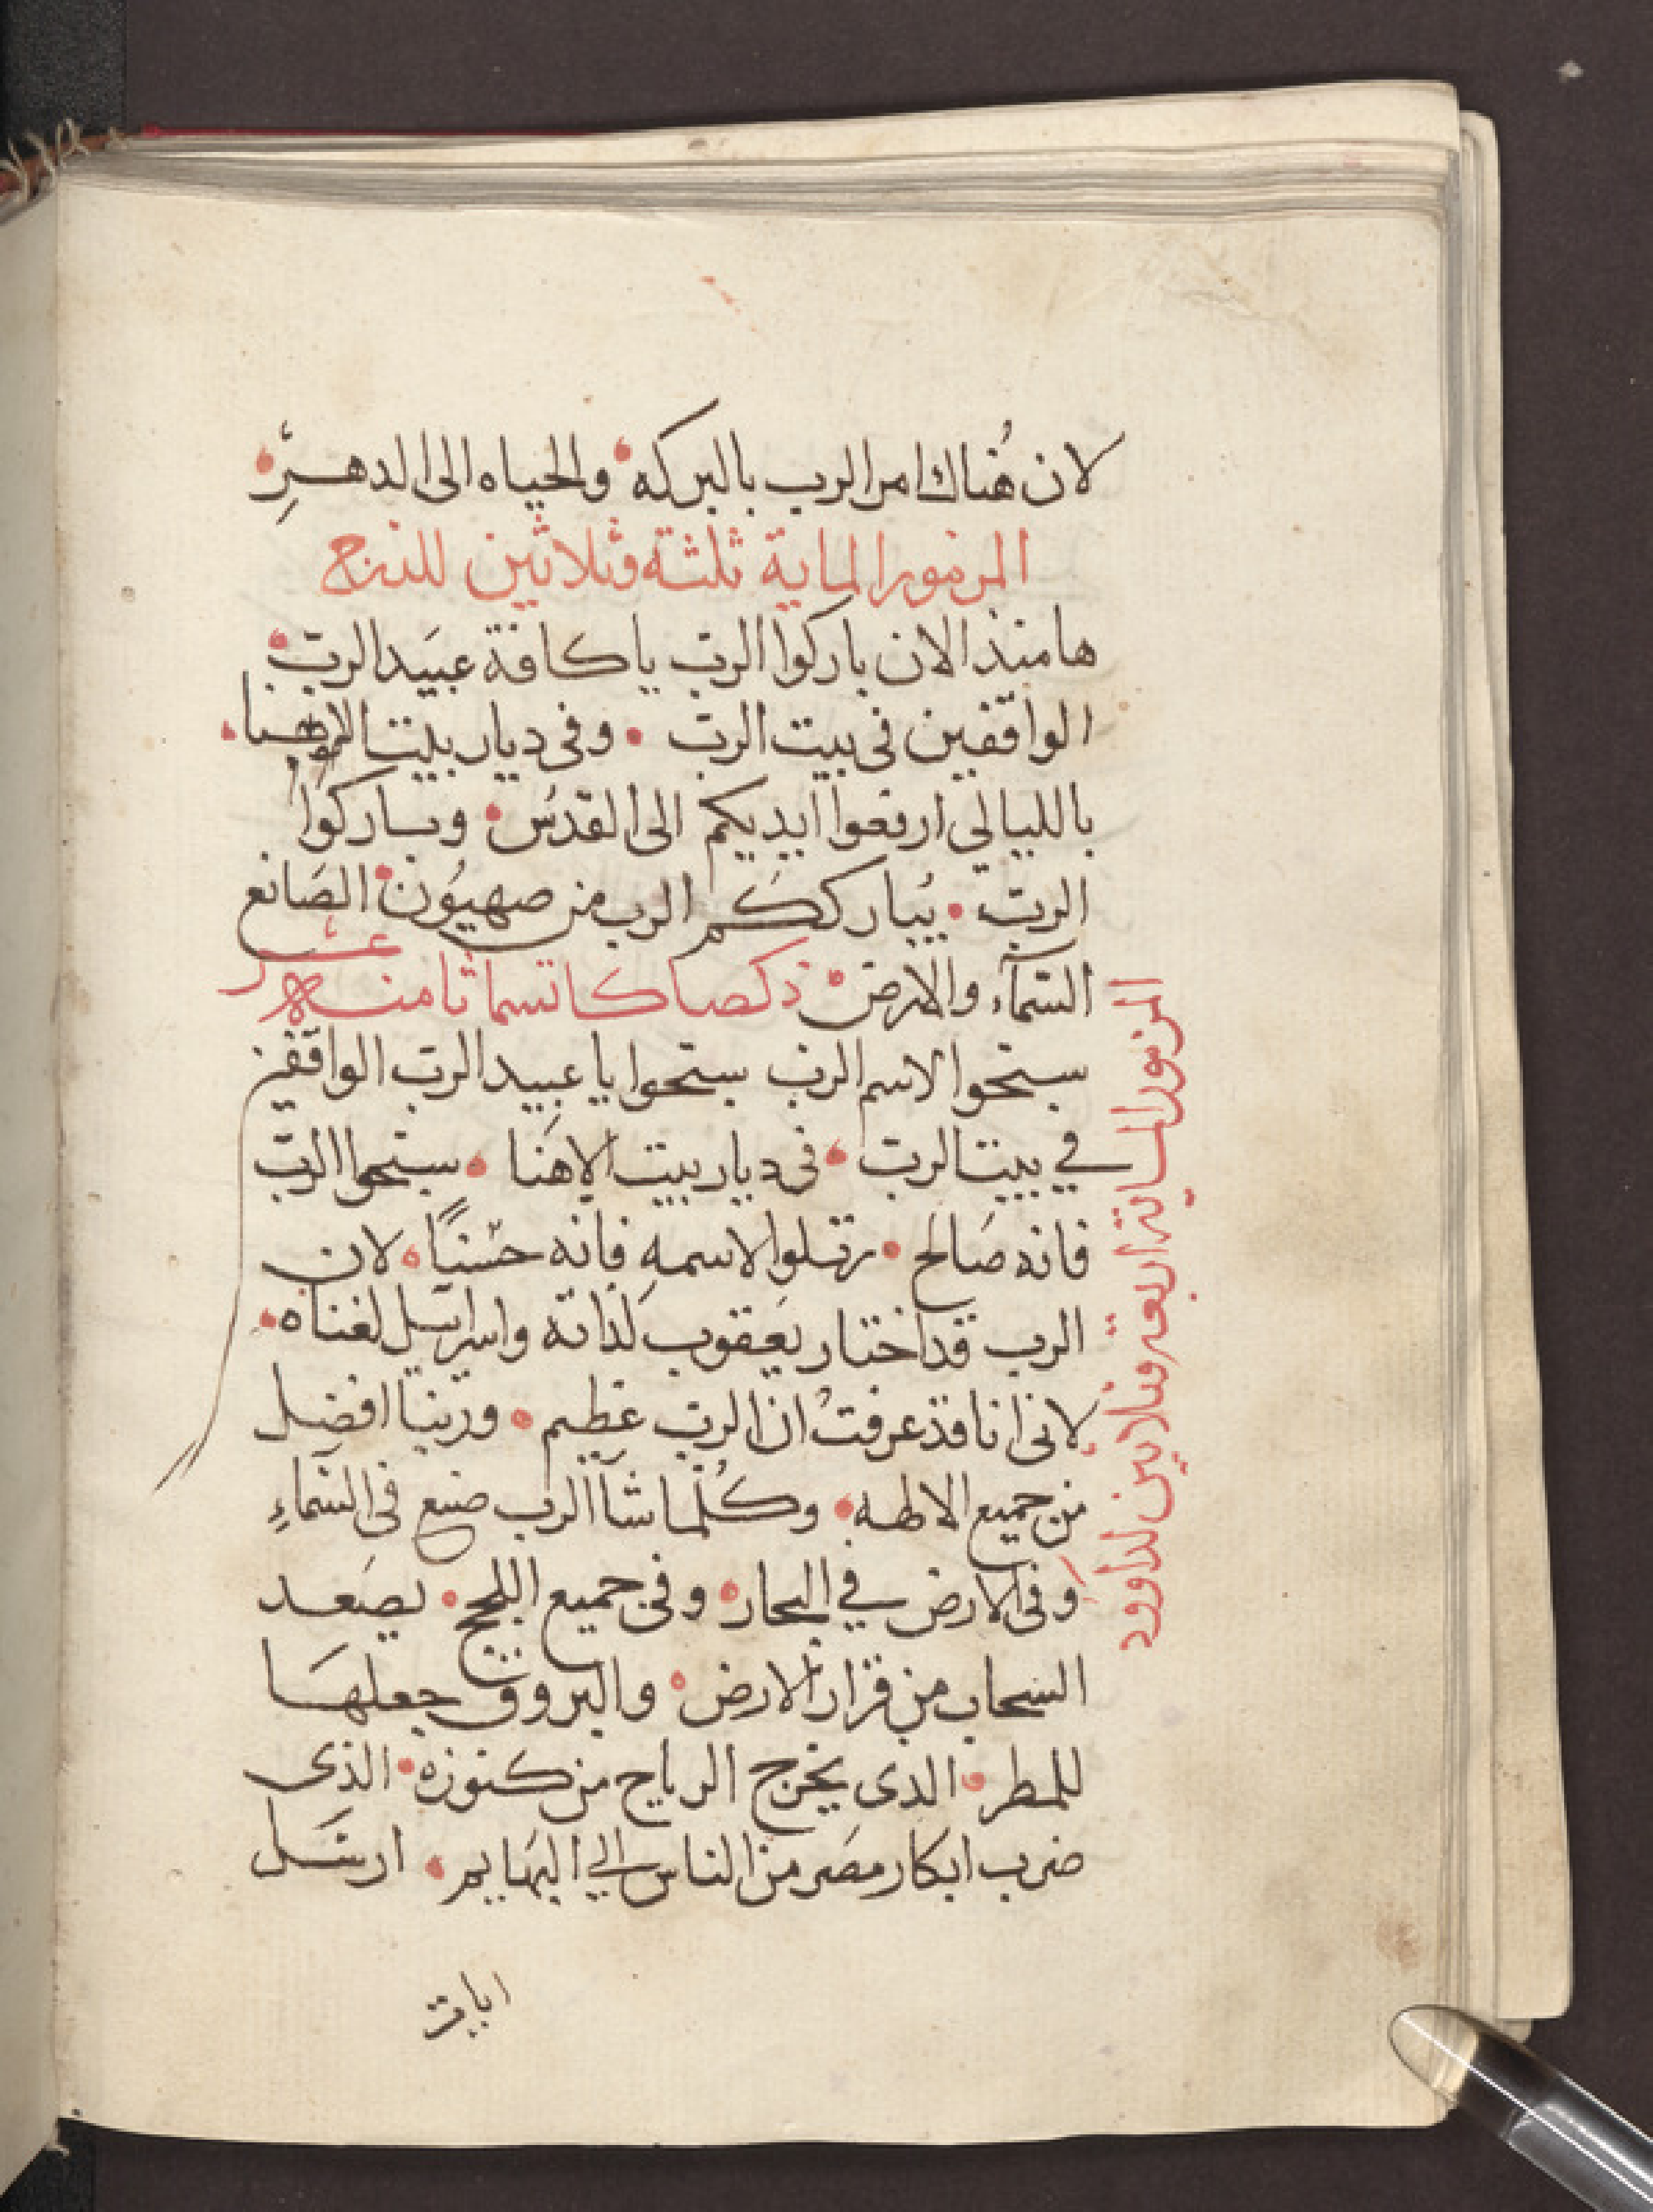 لان هُناك امر الرب بالبركه • والحياه الى الدهر •
المزمور الماية ثلثة وثلاثين للدرج
هامنذ الان باركوا الرب ياكافة عبيد الرب •
الواقفين في بيت الرب • وفي ديار بيت الاهنا •
بالليالي ارفعوا ايديكم الى القدس • وباركوا
الرب • يُباركُكم الرب من صهيون • الصانع
السمآء والارض • ذكصا كاتسما ثامنه عشر
المزمور الماية اربعة وثلاثين لداوود
سبحوا لاسم الرب سبحوا يا عبيد الرب الواقفين
في بيت الرب • في ديار بيت الاهنا • سبحوا الرب
فانه صَالح • رتلوا لاسمهِ فانه حسنًا • لان
الرب قد اختار يعقوب لذاته واسراييل لغناه •
لانى انا قد عرفتُ ان الرب عظيم • وربنا افضل
من جميع الالهه • وكُلّما شآ الرب صنع في السمآءِ
وفي الارض في البحار • وفي جميع اللجج • يصَعد
السحاب من قرار الارض • والبروق جعلهَا
للمطر • الدى يخرج الرياح من كنوزه • الذى
ضرب ابكار مصَر من الناس الي البهايم • ارسَل
ايا